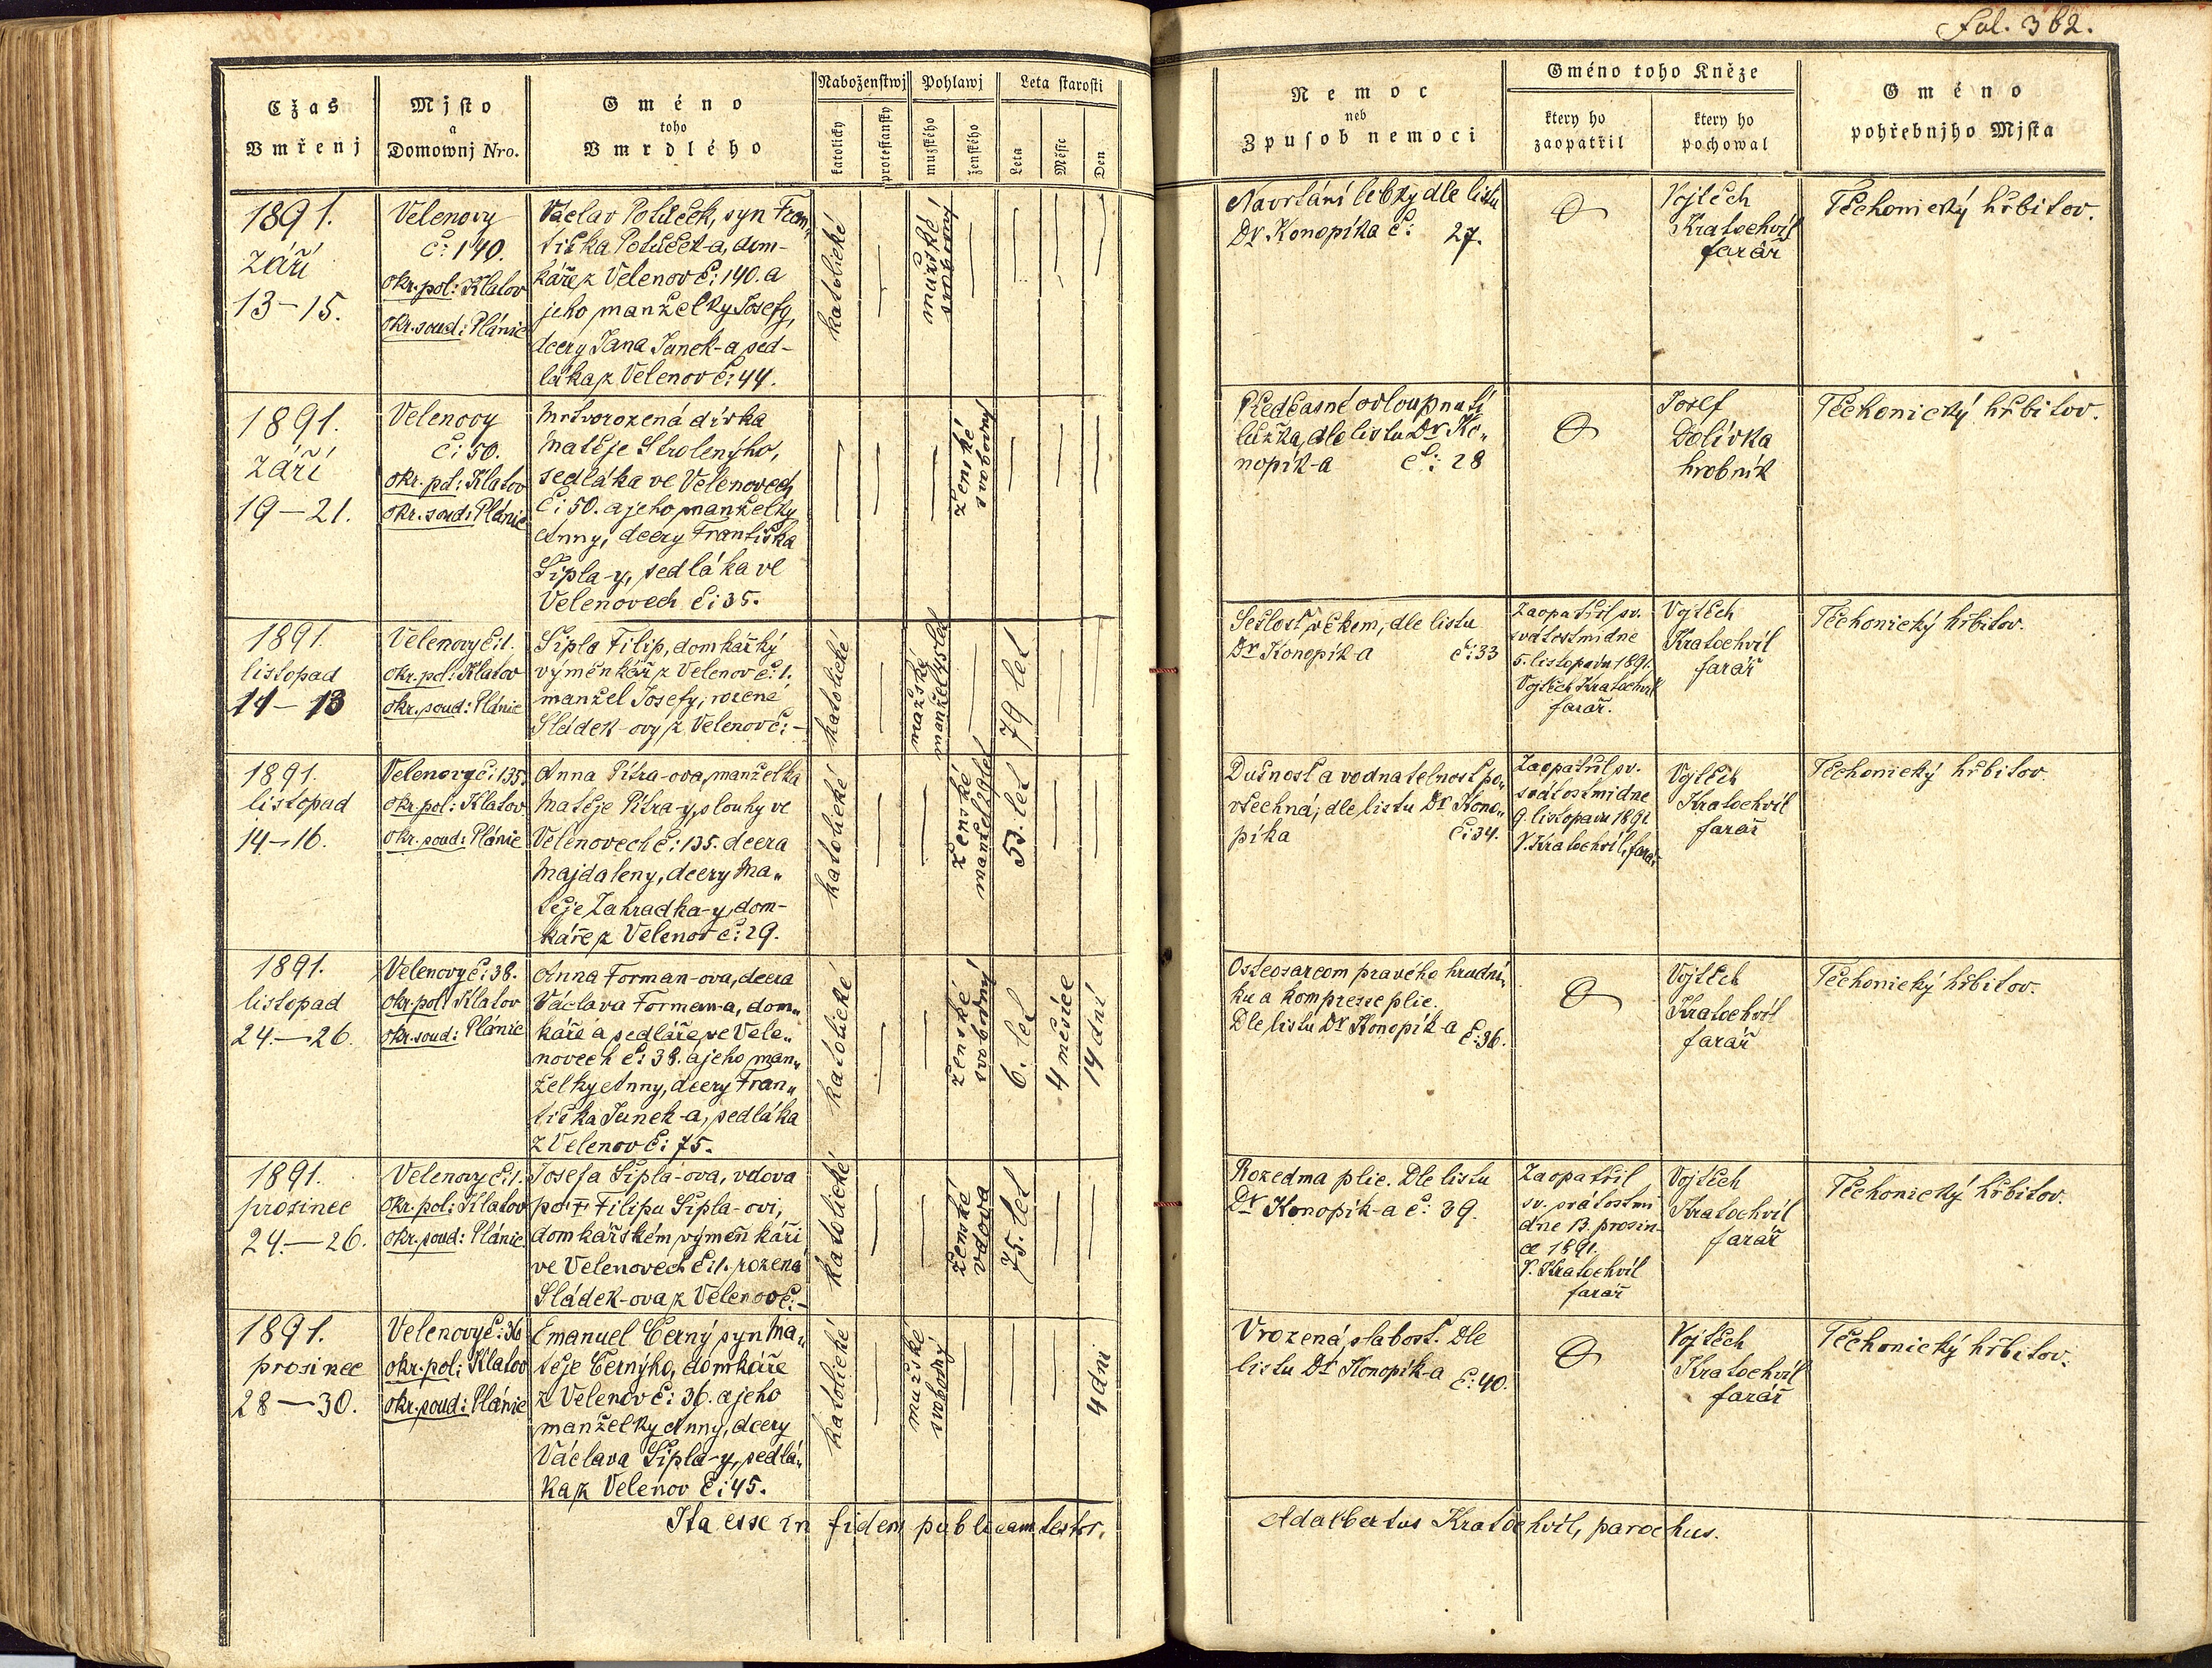 Fol. 362.
Cžas
Vmřenj
Mjsto
a
Domownj Nro.
Gméno
toho
Vmrdlého
Naboženstwj
katolicky
protestansky
Pohlawj
mužského
ženského
Leta starosti
Leta
Měsc
Den
Nemoc
neb
Zpusob nemoci
Gméno toho Kněze
ktery ho
zaopatřil
ktery ho
pochowal
Gméno
pohřebnjho Mjsta
1891.
září
13–15.
Velenovy
č: 140.
okr. pol: Klatov
okr. soud: Plánic
Václav Políček, syn Fran„
tiška Políček-a, dom-
káře z Velenov č: 140. a
jeho manželky Josefy,
dcery Jana Janek-a, sed-
láka z Velenov č: 44.
katolické
mužské
svobodný
Navrtání lebky dle listu
Dr Konopíka č: 27.
Vojtěch
Kratochvíl
farář
Těchonický hřbitov.
1891.
září
19–21.
Velenovy
č: 50.
okr. pol: Klatov
okr. soud: Plánic
Mrtvorozená dívka
Matěje Strolenýho,
sedláka ve Velenovech
č: 50. a jeho manželky
Anny, dcery Františka
Šipla-y, sedláka ve
Velenovech č: 35.
ženské
svobodný
Předčasné odloupnutí
lůžka, dle listu Dr Ko„
nopík-a č: 28
Josef
Dolívka
hrobník
Těchonický hřbitov.
1891.
listopad
11–13
Velenovy č: 1.
okr. pol: Klatov
okr. soud: Plánic
Šipla Filip, domkařký
výměnkář z Velenov č: 1.
manžel Josefy, rozené
Sládek-ový z Velenov č: –
katolické
mužský
manželský
79 let
Sešlost věkem, dle listu
Dr Konopík-a č: 33
Zaopatřil sv.
svátostmi dne
5. listopadu 1891.
Vojtěch Kratochvíl
farář.
Vojtěch
Kratochvíl
farář
Těchonický hřbitov.
1891.
listopad
14–16.
Velenovy č: 135.
okr. pol: Klatov
okr. soud: Plánic
Anna Pitra-ova, manželka
Matěje Pitra-y, slouhy ve
Velenovech č: 135. dcera
Majdaleny, dcery Ma„
těje Zahradka-y, dom-
káře z Velenov č: 29.
katolické
ženské
53. let
Dušnost a vodnatelnost po„
všechná, dle listu Dr Kono„
píka č: 34.
Zaopatřil sv.
svátostmi dne
9 listopadu 1891
V. Kratochvíl, farář
Vojtěch
Kratochvíl
farář
Těchonický hřbitov.
1891.
listopad
24.–26.
Velenovy č: 38.
okr. pol: Klatov
okr. soud: Plánic
Anna Forman-ova, dcera
Václava Forman-a, dom„
káře a sedláře ve Vele„
novech č: 38. a jeho man„
želky Anny, dcery Fran„
tiška Janek-a, sedláka
z Velenov č: 75.
katolické
ženské
svobodný
6. let
4 měsíce
14 dní
Osteosarcom pravého hrudní„
ku a kompresse plic.
Dle listu Dr Konopík-a č: 36.
Vojtěch
Kratochvíl
farář
Těchonický hřbitov.
1891.
prosinec
24.–26.
Velenovy č: 1.
okr. pol: Klatov
okr. soud: Plánic
Josefa Šipla-ova, vdova
po † Filipu Šipla-ovi,
domkářském výměnkáři
ve Velenovech č: 1. rozená
Sládek-ova z Velenov č: –
katolické
ženské
vdova
75. let
Rozedma plic. Dle listu
Dr Konopík-a č: 39.
Zaopatřil
sv. svátostmi
dne 13. prosin-
ce 1891.
V. Kratochvíl
farář
Vojtěch
Kratochvíl
farář
Těchonický hřbitov.
1891.
prosinec
28–30.
Velenovy č: 36
okr. pol: Klatov
okr. soud: Plánic
Emanuel Černý, syn Ma„
těje Černýho, domkáře
z Velenov č: 36. a jeho
manželky Anny, dcery
Václava Šipla-y, sedlá„
ka z Velenov č: 45.
katolické
mužské
svobodný
4 dní
Vrozená slabost. Dle
listu Dr Konopík-a č: 40.
Vojtěch
Kratochvíl
farář
Těchonický hřbitov.
Ita esse in fidem publicam testor.
Adalbertus Kratochvíl, parochus.